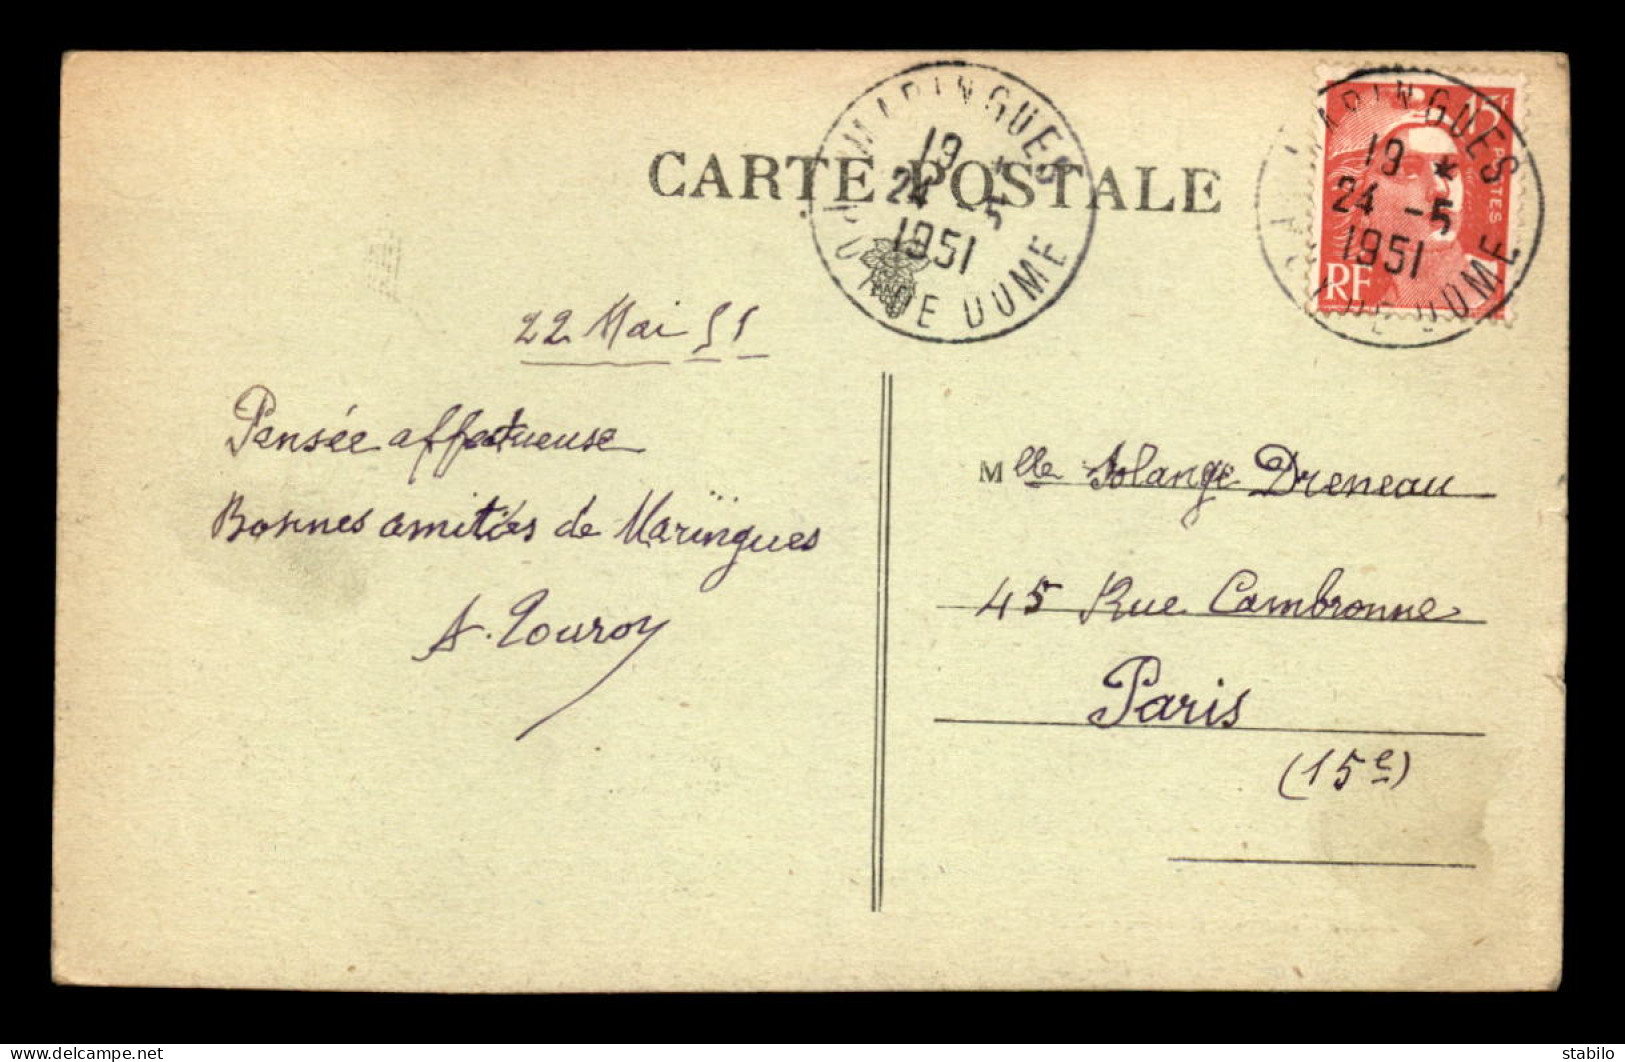 CARTE POSTALE
MARINGUES
19 *
24 -5
1951
PUY DE DOME
MARINGUES
19 *
24 -5
1951
DE DOME
15F
POSTES
RF
22 Mai 51
Pensée affectueuse
Bonnes amitiés de Maringues
A. Touroy
Mlle Solange Dreneau
45 Rue Cambronne
Paris
(15e)
stabilo | delcampe.net